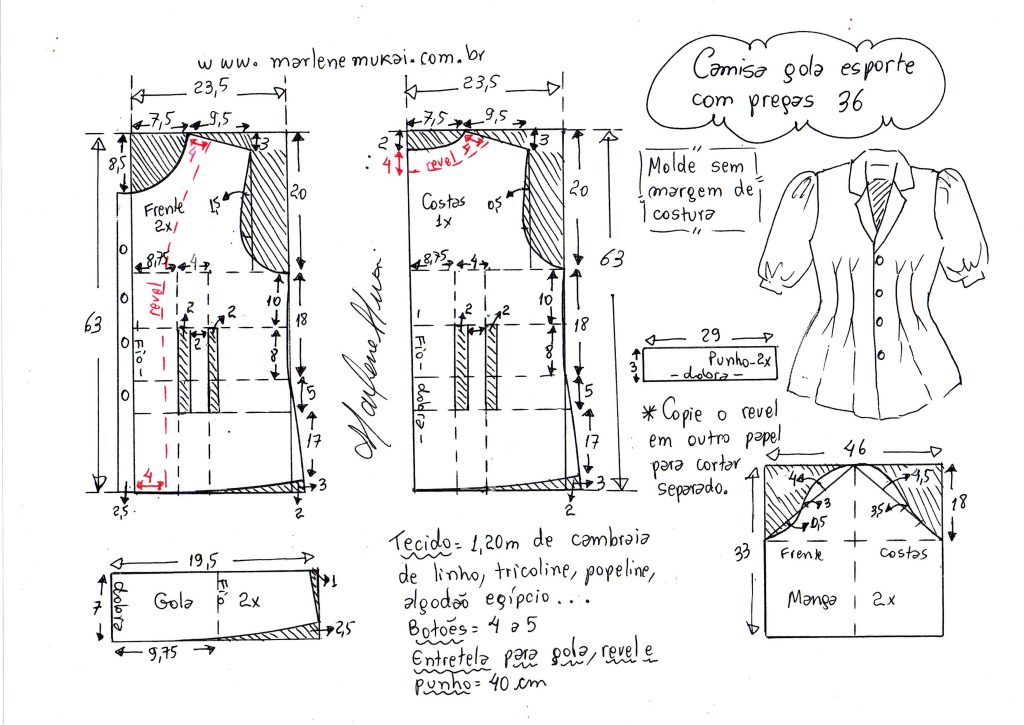 www.marlenemukai.com.br
Camisa gola esporte
com pregas 36
Molde sem
margem de
costura
23,5
7,5
9,5
8,5
4
3
20
1,5
Frente
2x
8,75
4
Revel
10
18
63
2
2
2
8
Fio
5
17
4
2,5
3
2
23,5
7,5
9,5
2
4
revel
5
3
20
0,5
Costas
1x
8,75
4
10
18
63
2
2
8
Fio
dobra
5
17
3
2
Marlene Mukai
29
3
Punho-2x
- dobra -
* Copie o revel
em outro papel
para cortar
separado.
46
4
4,5
18
3
3,5
0,5
33
Frente
Costas
Manga
2x
19,5
7
dobra
Gola
Fio
2x
1
2,5
9,75
Tecido = 1,20m de cambraia
de linho, tricoline, popeline,
algodão egípcio...
Botões = 4 a 5
Entretela para gola, revel e
punho = 40 cm